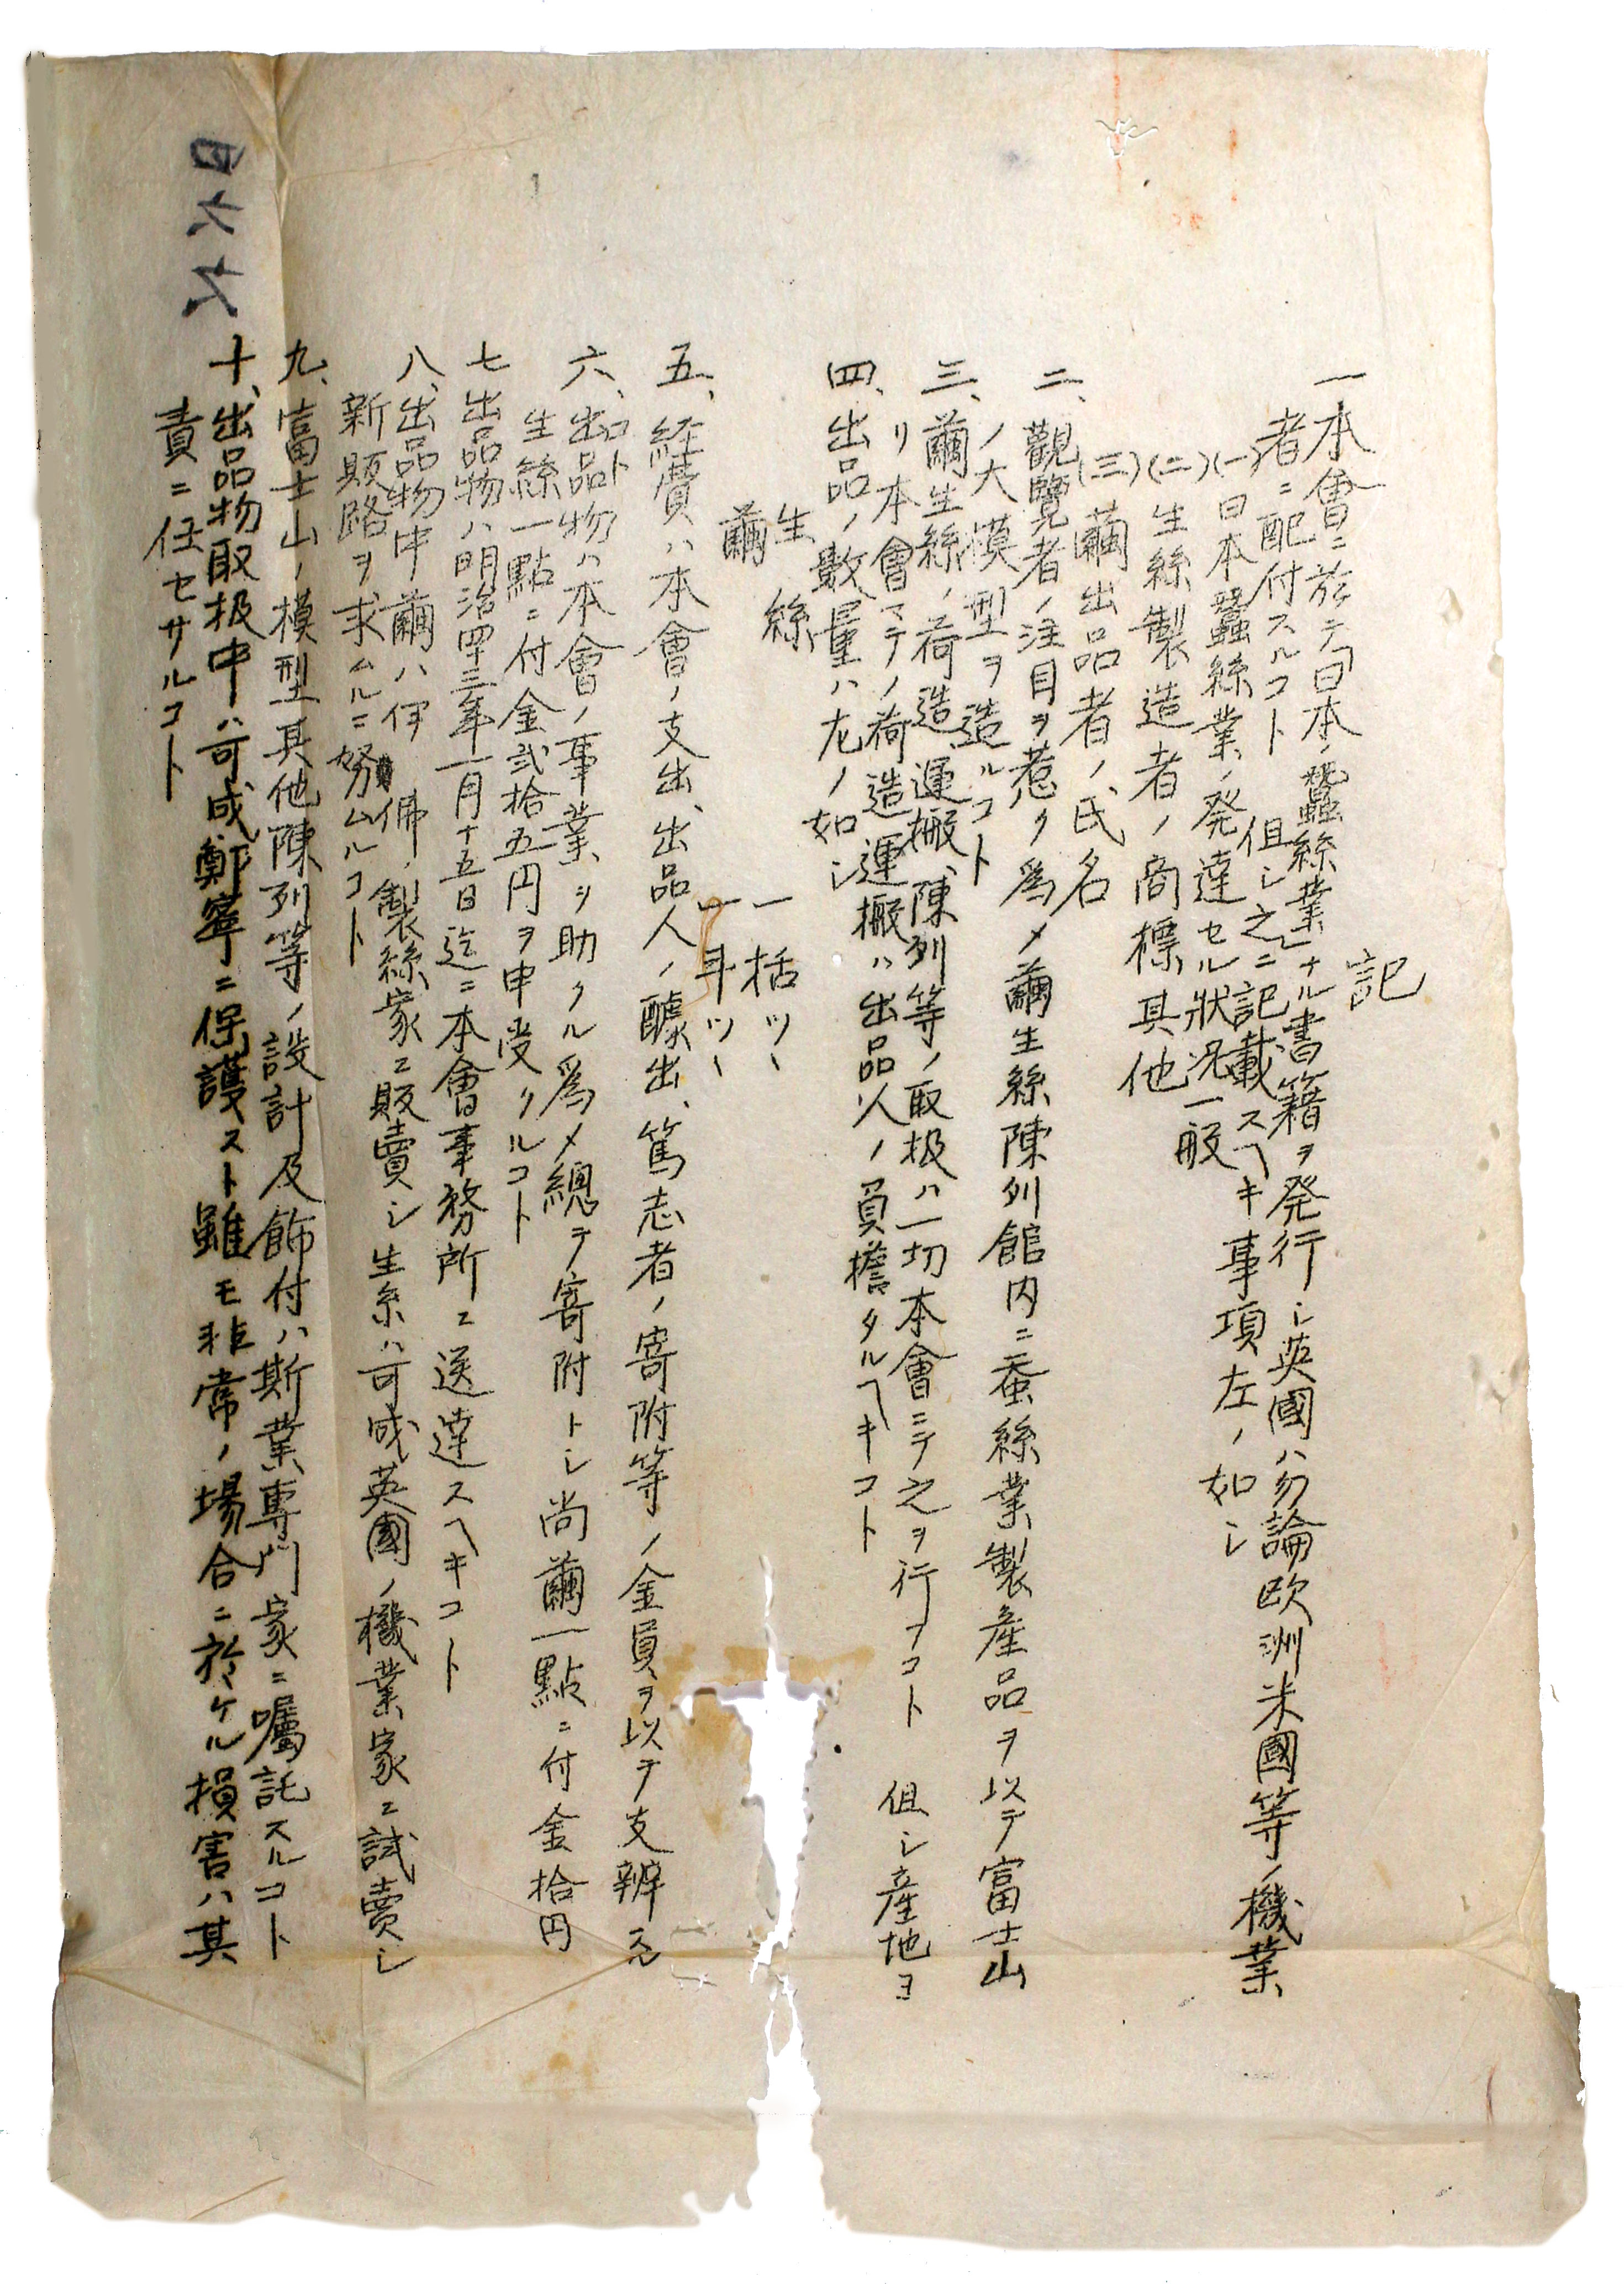 記
一本會ニ於テ「日本ノ蠶絲業」ナル書籍ヲ発行シ英國ハ勿論欧洲米國等ノ機業
者ニ配付スルコト 但シ之ニ記載スヘキ事項左ノ如シ
(一)日本蠶絲業ノ発達セル狀況一般
(二)生絲製造者ノ商標其他
(三)繭出品者ノ氏名
二、觀覽者ノ注目ヲ惹ク爲メ繭生絲陳列館内ニ蚕絲業製産品ヲ以テ富士山
ノ大模型ヲ造ルコト
三、繭生絲ノ荷造、運搬、陳列等ノ取扱ハ一切本會ニテ之ヲ行フコト 但シ産地ヨ
リ本會マテノ荷造運搬ハ出品人ノ負擔タルヘキコト
四、出品ノ數量ハ左ノ如シ
生絲 一括ツヽ
繭 一斗ツヽ
五、経費ハ本會ノ支出、出品人ノ醵出、篤志者ノ寄附等ノ金員ヲ以テ支辨スル
コト
六、出品物ハ本會ノ事業ヲ助クル爲メ總テ寄附トシ尚繭一點ニ付金拾円
生絲一點ニ付金弐拾五円ヲ申受クルコト
七出品物ハ明治四三年一月十五日迄ニ本會事務所ニ送達スヘキコト
八、出品物中繭ハ伊佛ノ製絲家ニ販賣シ生糸ハ可成英國ノ機業家ニ試賣シ
新販路ヲ求ムルニ努ムルコト
九、富士山ノ模型其他陳列等ノ設計及飾付ハ斯業専門家ニ囑託スルコト
十、出品物取扱中ハ可成鄭寧ニ保護スト雖モ非常ノ場合ニ於ケル損害ハ其
責ニ任セサルコト
四六六